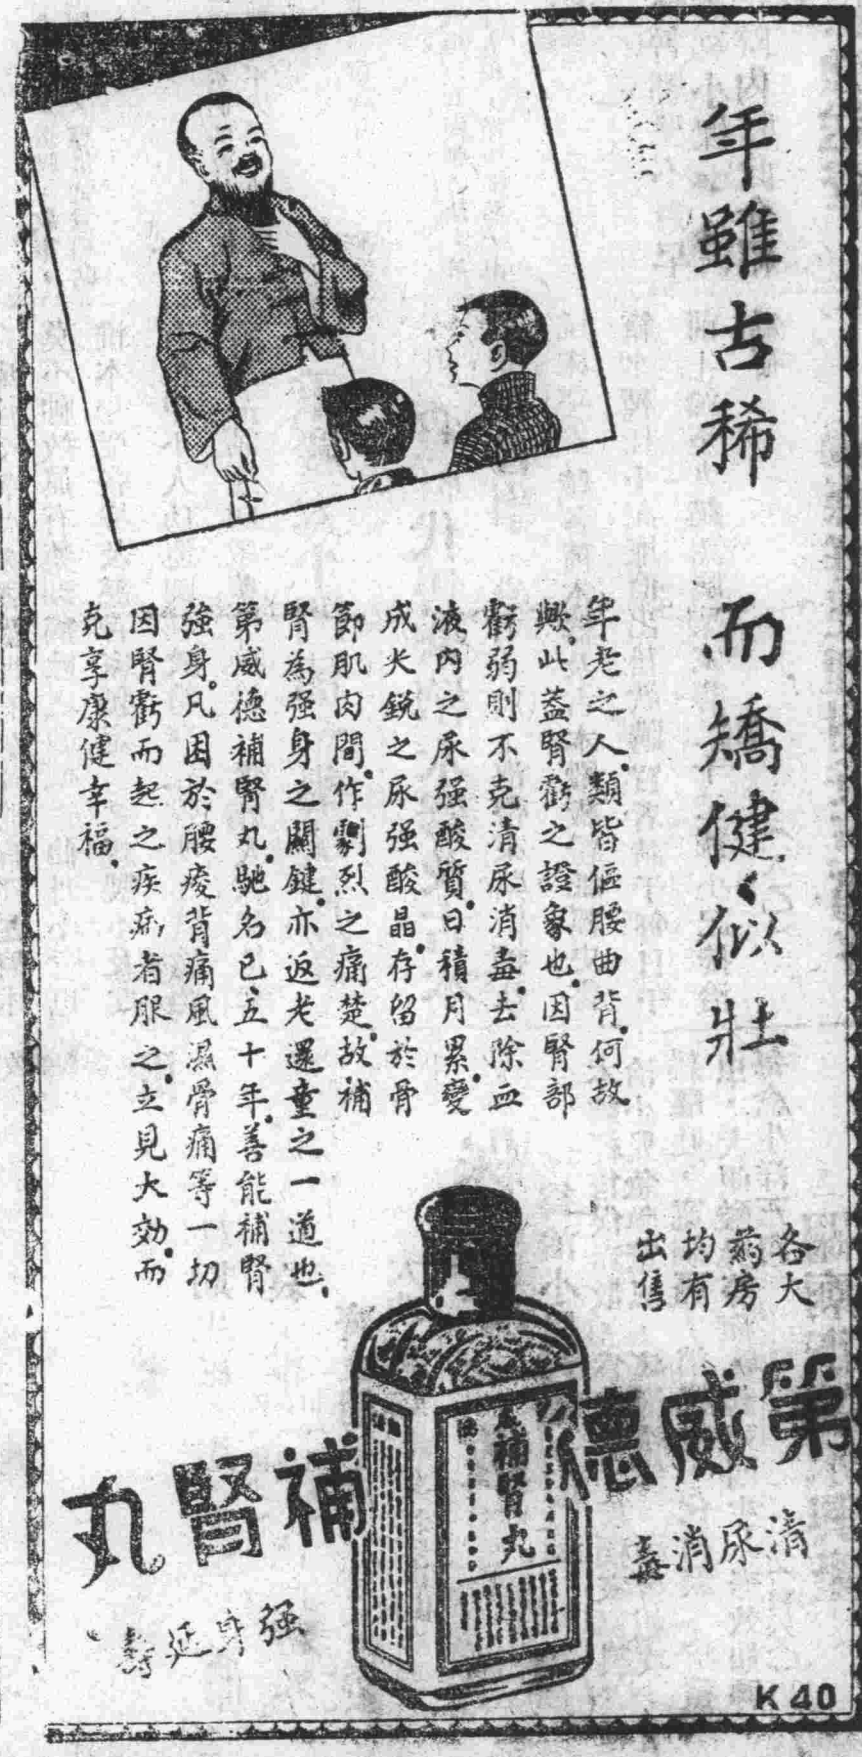 年雖古稀
而矯健似壯
年老之人。類皆傴腰曲背。何故
歟。此蓋腎虧之證象也。因腎部
虧弱則不克清尿消毒。去除血
液內之尿强酸質。日積月累。變
成尖銳之尿强酸晶。存留於骨
節肌肉間。作劇烈之痛楚。故補
腎為强身之關鍵。亦返老還童之一道也。
第威德補腎丸。馳名已五十年。善能補腎
強身。凡因於腰痠背痛風濕骨痛等一切
因腎虧而起之疾病者服之。立見大効。而
克享康健幸福。
各大
藥房
均有
出售
第威德
補腎丸
清尿消毒
强身延壽
補腎丸
K 40